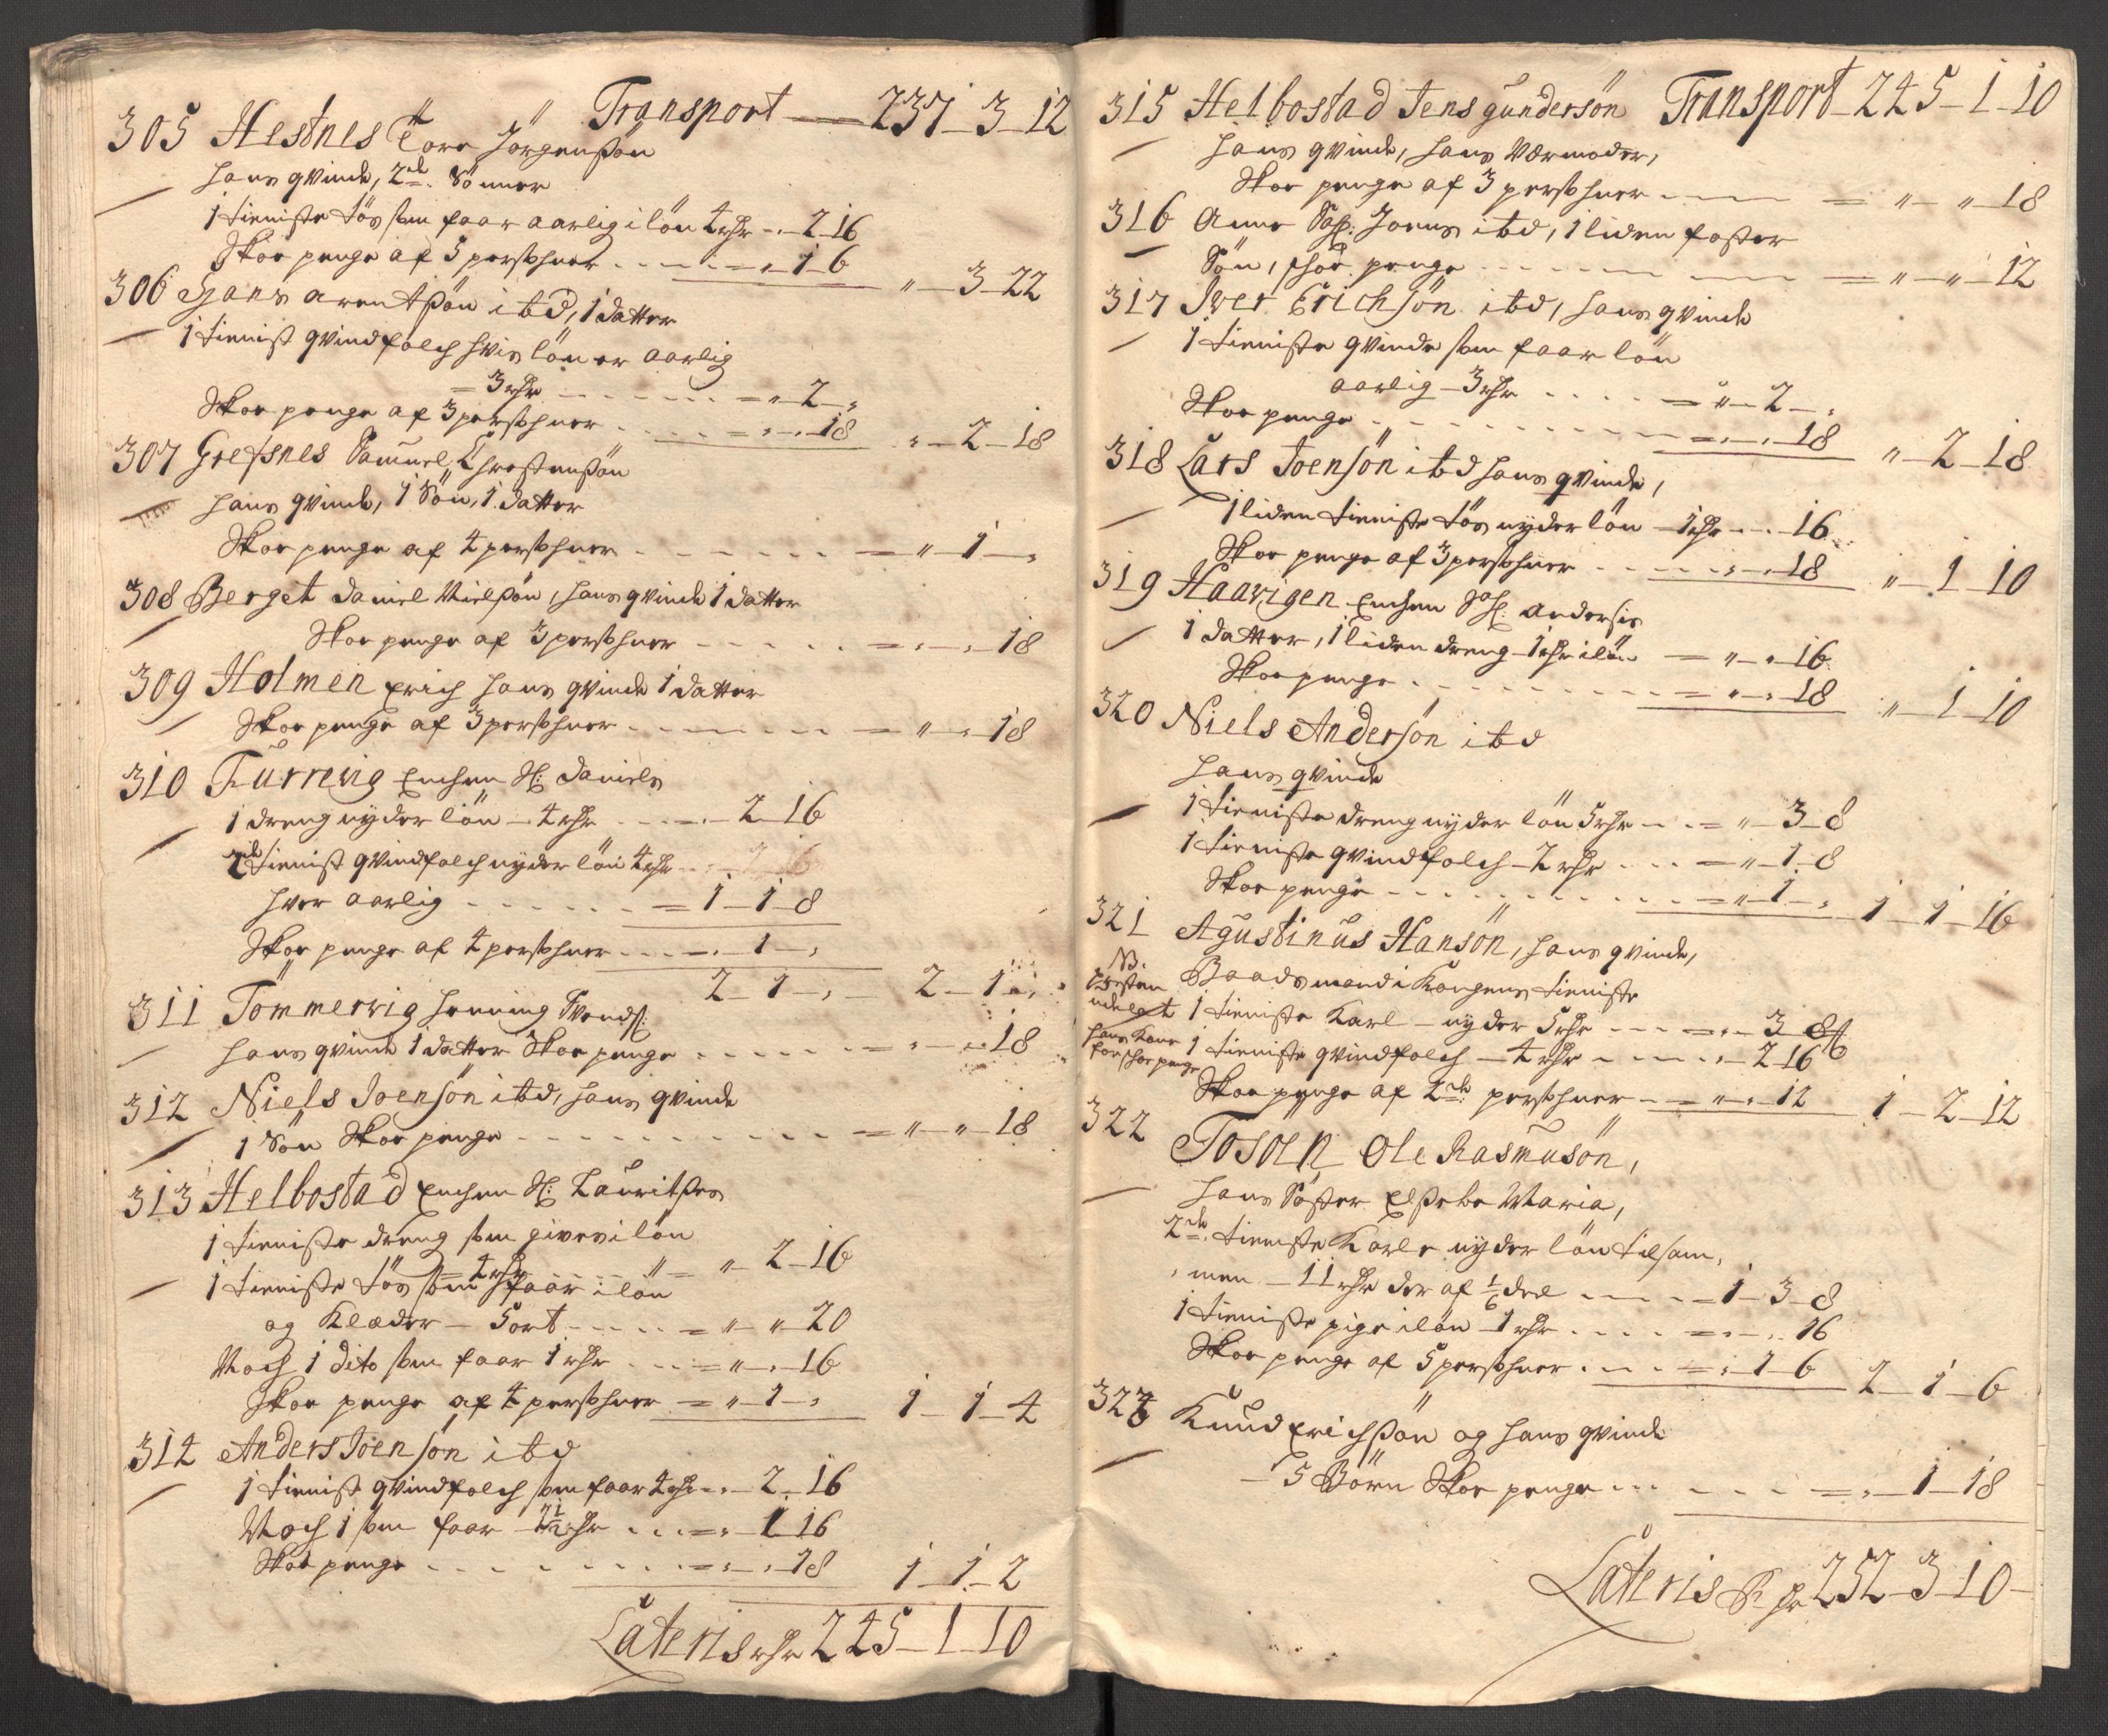 Transport — 237 - 3 - 12
305 Hestnes Tore Jörgensßön
hans qvinde, 2de Sönner
1 tieniste tös som faar aarlig i lön 4 rdr - 2 - 16
Skoe penge af 5 persohner - 1 - 6 " - 3 - 22
306 Hans arentßön ibd, 1 datter
1 tienist qvindfolch hvis lön er aarlig
3 rdr - " 2 - "
Skoe penge af 3 persohner - " - 18 " - 2 - 18
307 Grefsnes Samuel Chrestensßön
hans qvinde, 1 Sön, 1 datter
Skoe penge af 4 persohner - " - 1 - "
308 Berget daniel Nielßön, hans qvinde 1 datter
Skoe penge af 3 persohner - " - " - 18
309 Holmen Erich hans qvinde 1 datter
Skoe penge af 3 persohner - " - " - 18
310 Furrevig Enchen Sl: daniels
1 dreng nyder lön - 4 rdr - 2 - 16
2de tienist qvindfolch nyder lön 4 rdr
hver aarlig - 1 - 1 - 8
Skoe penge af 4 persohner - 1 - "
2 - 1 - " 2 - 1 - "
311 Tömmervig Henning Trondß:
hans qvinde 1 datter Skoe penge - " - " - 18
312 Niels Joensön ibd, hans qvinde
1 Sön Skoe penge - " - " - 18
313 Helbostad Enchen Sl: Lauritßes
1 tieniste dreng som gives i lön
4 rdr - " - 2 - 16
1 tieniste tös som faar i lön
og Klæder - 5 ort - " - " 20
Noch 1 dito som faar 1 rdr - " - " - 16
Skoe penge af 4 persohner - " - 1 - " 1 - 1 - 4
314 Anders Joensön ibd
1 tienist qvindfolch som faar 4 rdr - 2 - 16
Noch 1 som faar 2½ rdr - " - 1 - 16
Skoe penge - " - " - 18 1 - 1 - 2
Lateris rdr 245 - 1 - 10
315 Helbostad Jens gundersön Transport - 245 - 1 - 10
hans qvinde, hans Værmoder,
Skoe penge af 3 persohner - " - " - 18
316 Anne Sahl: Joens ibd, 1 liden foster
Sön, schoe penge - " - " - 12
317 Iver Erichsön ibd, hans qvinde
1 tieniste qvinde som faar lön
aarlig - 3 rdr - " - 2 - "
Skoe penge - " - 18 " - 2 - 18
318 Lars Joensön ibd hans qvinde,
1 liden tieniste tös nyder lön - 1 rdr - 16
Skoe penge af 3 persohner - " - 18 " - 1 - 10
319 Haavigen Enchen Sahl: Andersis
1 datter, 1 liden dreng 1 rdr i lön - " - " 16
Skoe penge - " - " 18 " - 1 - 10
320 Niels Andersön ibd
hans qvinde
1 tieniste dreng nyder lön 5 rdr - " - 3 - 8
1 tieniste qvindfolch - 2 rdr - " - 1 - 8
Skoe penge - " - 1 - " 1 - 1 - 16
321 Agustinus Hansön, hans qvinde,
NB.
Baadsmand i Kongens tieniste
1 tieniste Karl - nyder 5 rdr - " - 3 8
1 tieniste qvindfolch - 4 rdr - " - 2 16
hans Kone
for skoe penge
Skoe penge af 2de persohner - " - " - 12 1 - 2 - 12
322 Tosen Ole Rasmusön,
hans Söster Elßebe Maria,
2de tieniste Karle nyder lön tilsam,
men - 11 rdr der af 1/6 deel - 1 - 3 - 8
1 tieniste pige i lön 1 rdr - " - " 16
Skoe penge af 5 persohner - " - 1 - 6 2 - 1 - 6
323 Knud Erichßön og hans qvinde
5 Börn Skoe penge - " - 1 - 18
Lateris Rdr 252 - 3 - 10